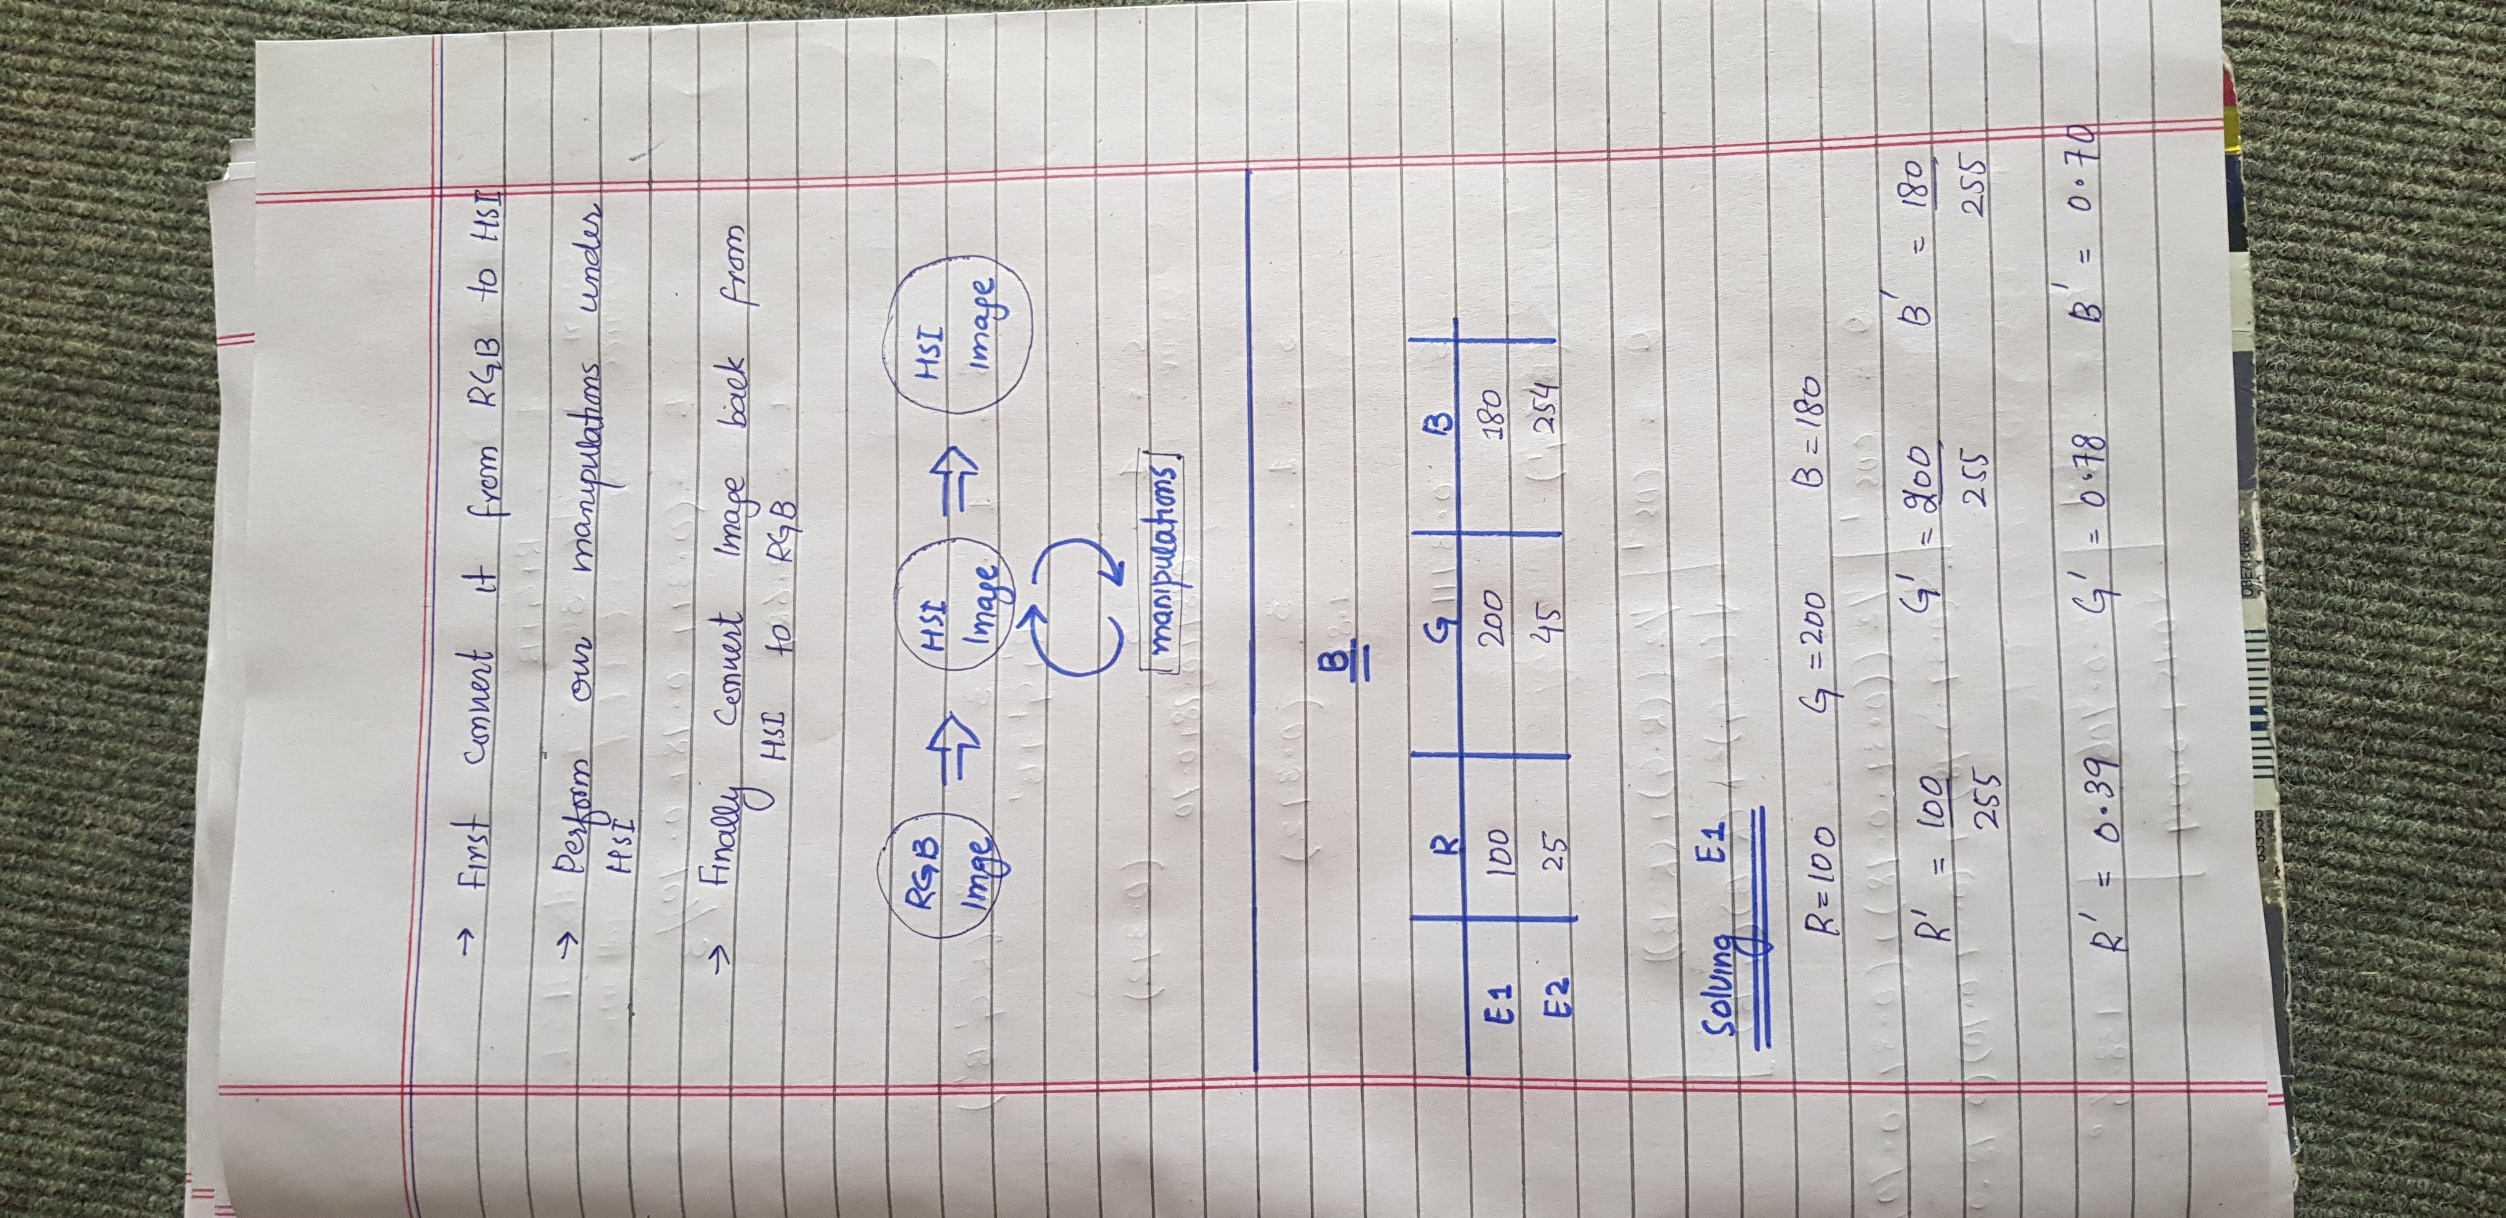 → First convert it from RGB to HSI
→ Perform our manipulations under
HSI
→ Finally convert Image back from
HSI to RGB
RGB Image ⇒ HSI Image ⇒ HSI Image
manipulations
B
R G B
E1 100 200 180
E2 25 45 254
Solving E1
R=100 G=200 B=180
R' = 100/255 G' = 200/255 B' = 180/255
R' = 0.39 G' = 0.78 B' = 0.70